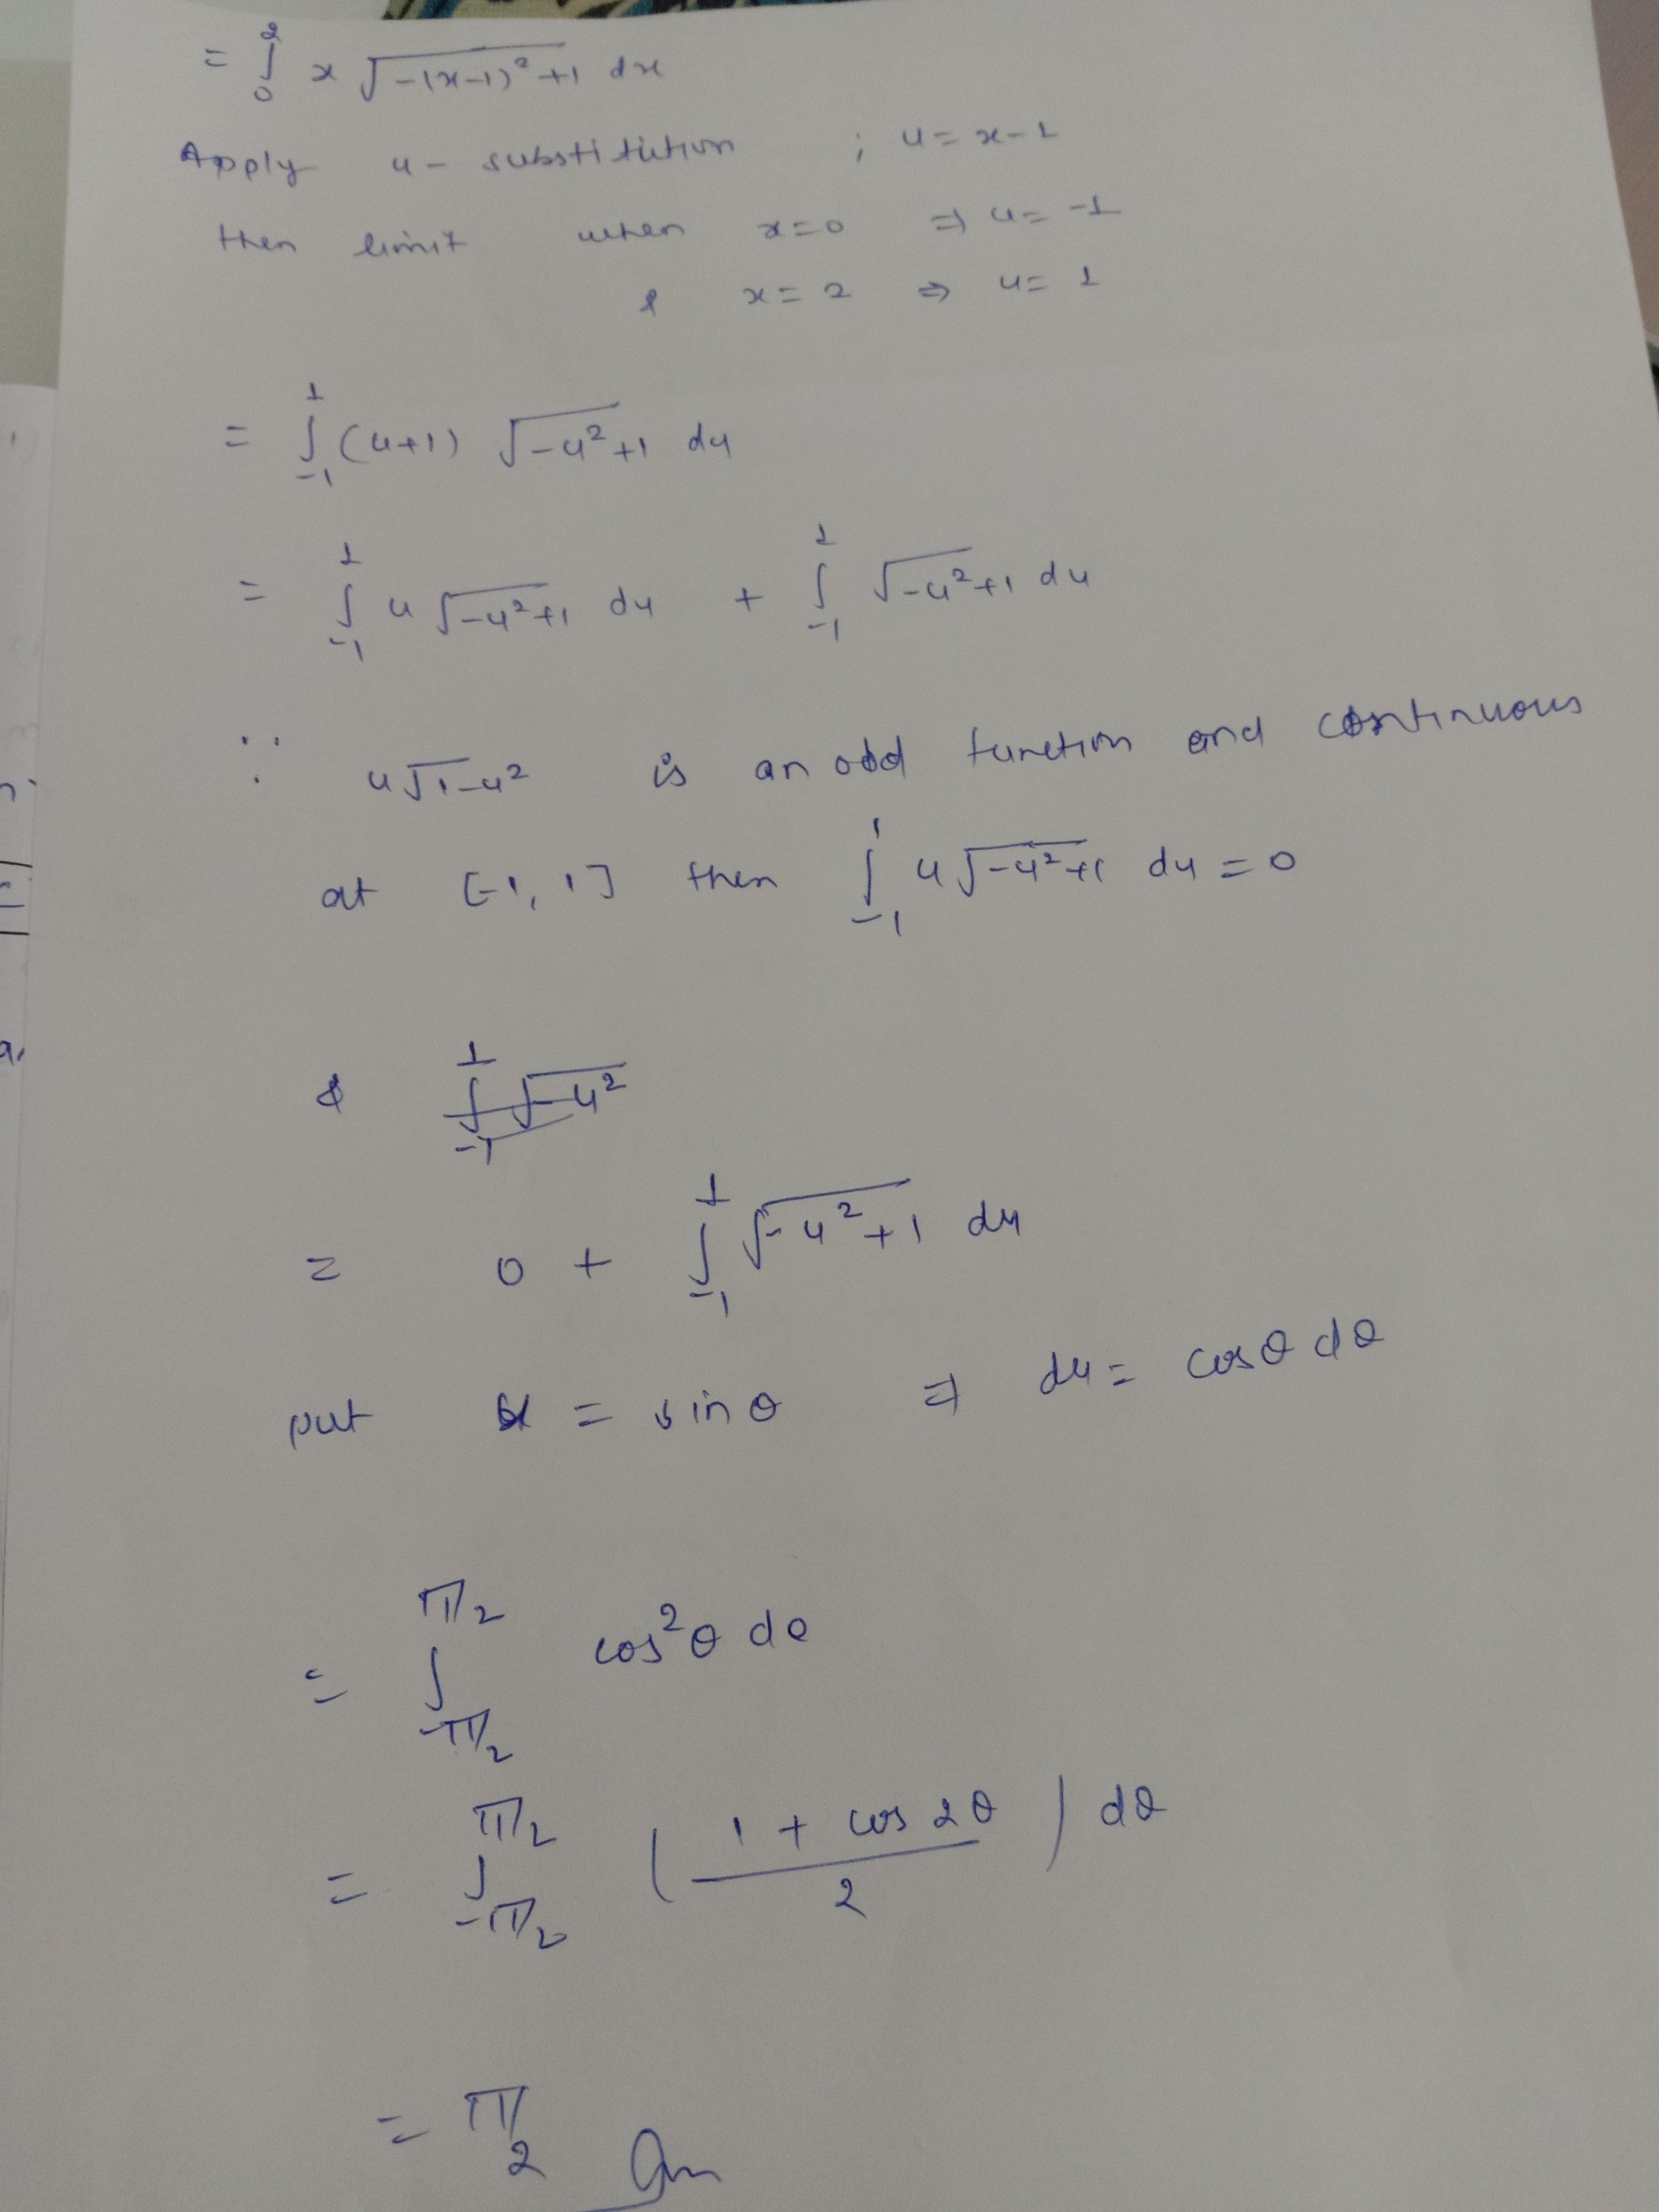 = ∫₀² x √-(x-1)²+1 dx
Apply u- substitution ; u = x-1
then limit when x=0 ⇒ u= -1
& x = 2 ⇒ u= 1
= ∫₋₁¹ (u+1) √-u²+1 du
= ∫₋₁¹ u √-u²+1 du + ∫₋₁¹ √-u²+1 du
∵ u√1-u² is an odd function and continuous
at [-1, 1] then ∫₋₁¹ u√-u²+1 du = 0
& ∫₋₁¹ √-u²
= 0 + ∫₋₁¹ √-u²+1 du
put u = sin θ ⇒ du = cos θ dθ
= ∫_{-π/2}^{π/2} cos²θ dθ
= ∫_{-π/2}^{π/2} (1 + cos 2θ / 2) dθ
= π/2 Ans